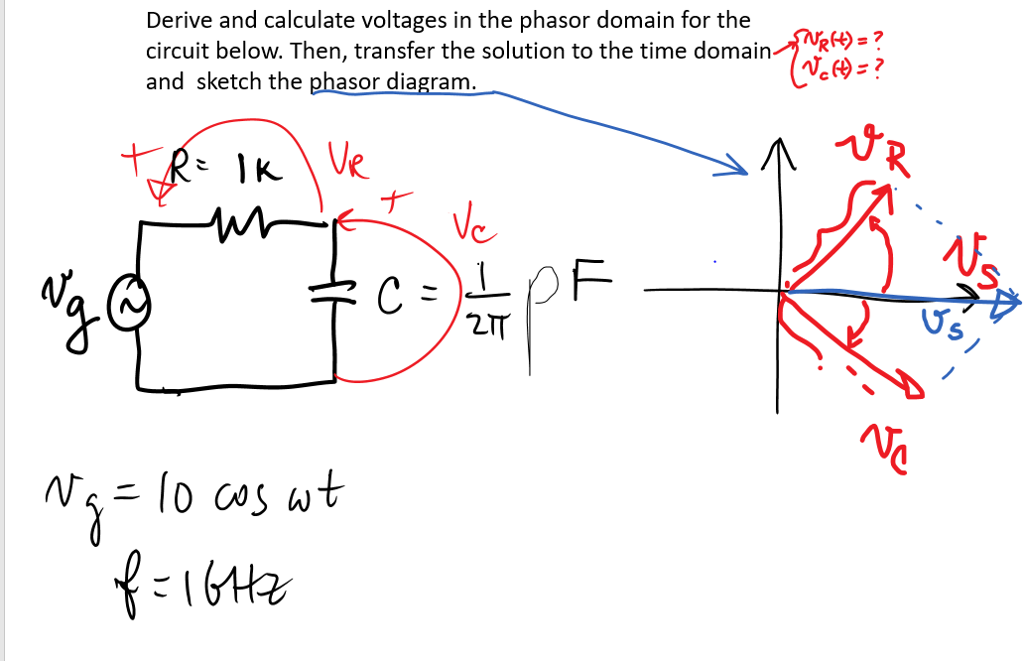 Derive and calculate voltages in the phasor domain for the
circuit below. Then, transfer the solution to the time domain
and sketch the phasor diagram.
v_R(t) = ?
v_c(t) = ?
+ R = 1K V_R
+
V_C
v_g
C = 1/2π pF
v_R
v_S
v_s
v_C
v_g = 10 cos ωt
f = 1GHz